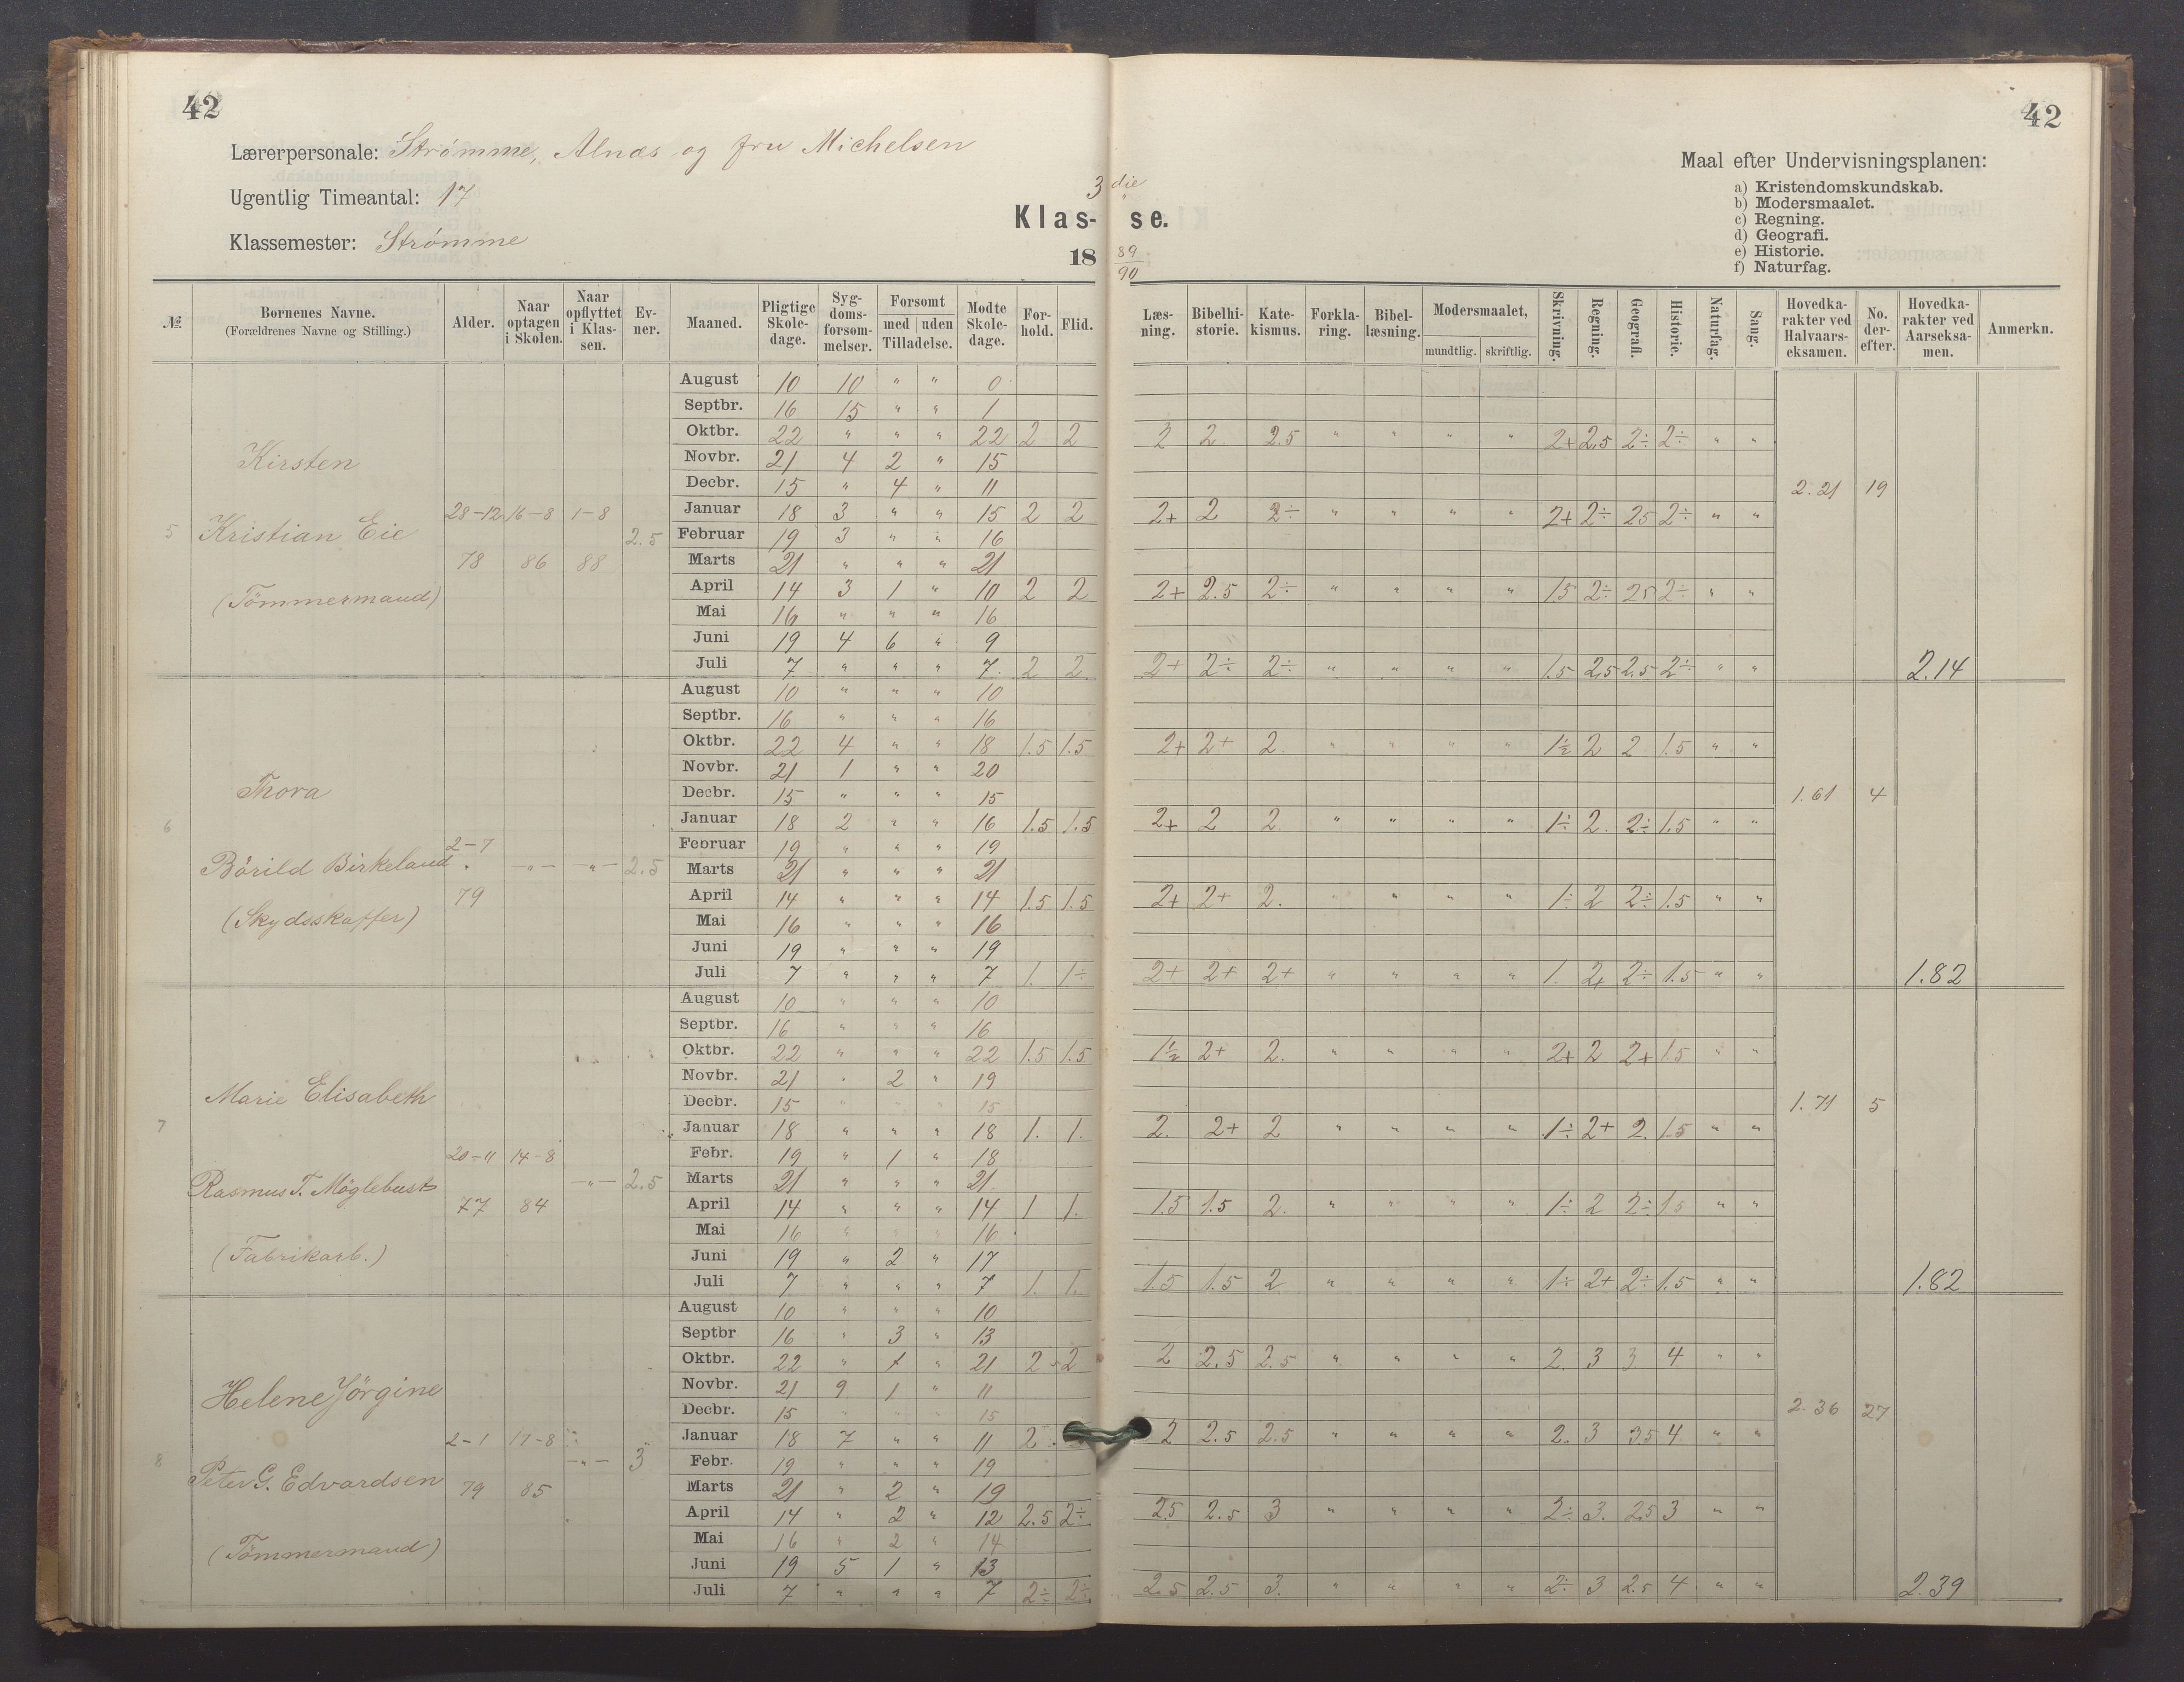 42
42
Lærerpersonale: Strømme, Alnæs og fru Michelsen
Ugentlig Timeantal: 17
Klassemester: Strømme
3 die
Klas- se.
18 89/90
Maal efter Undervisningsplanen:
a) Kristendomskundskab.
b) Modersmaalet.
c) Regning.
d) Geografi.
e) Historie.
f) Naturfag.
№ Børnenes Navne. (Forældrenes Navne og Stilling.) Alder. Naar optagen i Skolen. Naar opflyttet i Klassen. Evner. Maaned. Pligtige Skoledage. Sygdomsforsommelser. Forsømt med uden Tilladelse. Mødte Skoledage. Forhold. Flid. Læsning. Bibelhistorie. Katekismus. Forklaring. Bibellæsning. Modersmaalet, mundtlig. skriftlig. Skrivning. Regning. Geografi. Historie. Naturfag. Sang. Hovedkarakter ved Halvaarseksamen. No. derefter. Hovedkarakter ved Aarseksamen. Anmerkn.
5 Kirsten
Kristian Eie
(Tömmermand)
28-12 78 16-8 86 1-8 88 2.5
August 10 10 " " 0
Septbr. 16 15 " " 1
Oktbr. 22 " " " 22 2 2 2 2 2.5 " " " " 2+ 2.5 2÷ 2÷ " "
Novbr. 21 4 2 " 15
Decbr. 15 " 4 " 11 2.21 19
Januar 18 3 " " 15 2 2 2+ 2 2÷ " " " " 2+ 2÷ 25 2÷ " "
Februar 19 3 " " 16
Marts 21 " " " 21
April 14 3 1 " 10 2 2 2+ 2.5 2÷ " " " " 15 2÷ 25 2÷ " "
Mai 16 " " " 16
Juni 19 4 6 " 9
Juli 7 " " " 7. 2 2. 2+ 2÷ 2÷ " " " " 1.5 2.5 2.5 2÷ " " 2.14
6 Thora
Börild Birkeland
(Skydsskaffer)
2-7 79 -"- -"- 2.5
August 10 " " " 10
Septbr. 16 " " " 16
Oktbr. 22 4 " " 18 1.5 1.5 2+ 2+ 2 " " " " 1½ 2 2 1.5 " "
Novbr. 21 1 " " 20
Decbr. 15 " " " 15 1.61 4
Januar 18 2 " " 16 1.5 1.5 2+ 2 2 " " " " 1÷ 2. 2÷ 1.5 " "
Februar 19 " " " 19
Marts 21 " " " 21
April 14 " " " 14 1.5 1.5 2+ 2+ 2. " " " " 1÷ 2 2÷ 1.5 " "
Mai 16 " " " 16
Juni 19 " " " 19
Juli 7 " " " 7 1. 1÷ 2+ 2+ 2+ " " " " 1. 2+ 2÷ 1.5 " " 1.82
7 Marie Elisabeth
Rasmus T. Möglebust
(Fabrikarb.)
20-11 77 14-8 84 -"- 2.5
August 10 " " " 10
Septbr. 16 " " " 16
Oktbr. 22 " " " 22 1.5 1.5 1½ 2+ 2. " " " " 2+ 2 2+ 1.5 " "
Novbr. 21 " 2 " 19
Decbr. 15 " " " 15 1.71 5
Januar 18 " " " 18 1. 1. 2. 2+ 2 " " " " 1÷ 2+ 2. 1.5 " "
Febr. 19 " 1 " 18
Marts 21 " " " 21.
April 14 " " " 14 1 1. 1.5 1.5 2. " " " " 1÷ 2 2÷ 1.5 " "
Mai 16 " " " 16
Juni 19 " 2 " 17
Juli 7 " " " 7 1. 1. 1.5 1.5 2 " " " " 1÷ 2+ 2÷ 1.5 " " 1.82
8 Helene Jörgine
Peter G. Edvardsen
(Tömmermand)
2-1 79 17-8 85 -"- 3
August 10 " " " 10
Septbr 16 " 3 " 13
Oktbr. 22 " 1 " 21 2 2 2 2.5 2.5 " " " " 2. 3 3 4 " "
Novbr. 21 9 1 " 11
Decbr. 15 " " " 15 2.36 27
Januar 18 7 " " 11 2 2 2.5 2.5 " " " " 2. 3 3.5 4 " "
Febr. 19 " " " 19
Marts 21 " 2 " 19
April 14 " 2 " 12 2.5 2÷ 2.5 2.5 3 " " " " 2÷ 3. 2.5 3 " "
Mai 16 " 2 " 14
Juni 19 5 1 " 13
Juli 7 " " " 7 2÷ 2÷ 2.5 2.5 3. " " " " 2÷ 3 2.5 4 " " 2.39